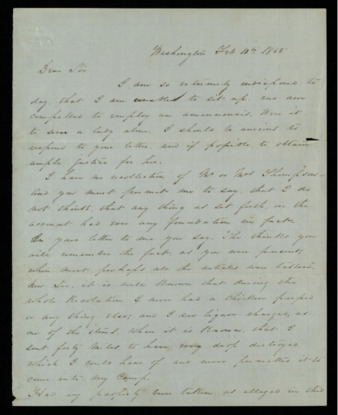 Washington Feb 10th 1855
Dear Sir
I am so extremely indisposed to
day, that I am unable to sit up, and am
compelled to employ an amanuensis. Were it
to serve a lady alone, I should be anxious to
respond to your letter, and if possible to obtain
ample justice for her.
I have no recollection of Mr or Mrs Thompson
and you must permit me to say, that I do
not think, that any thing as set forth in the
account has ever any foundation in fact.
In your letter to me you say, "She thinks you
will remember the fact, as you were present,
when most, perhaps all the articles were taken."
Now Sir, it is well known that during the
whole Revolution I never had a chicken pressed
or any thing else; and I see liquor charged, as
one of the items, when it is known, that I
sent forty miles to have every drop destroyed
which I could hear of and never permitted it to
come into my Camp.
Has any property been taken as alleged in this